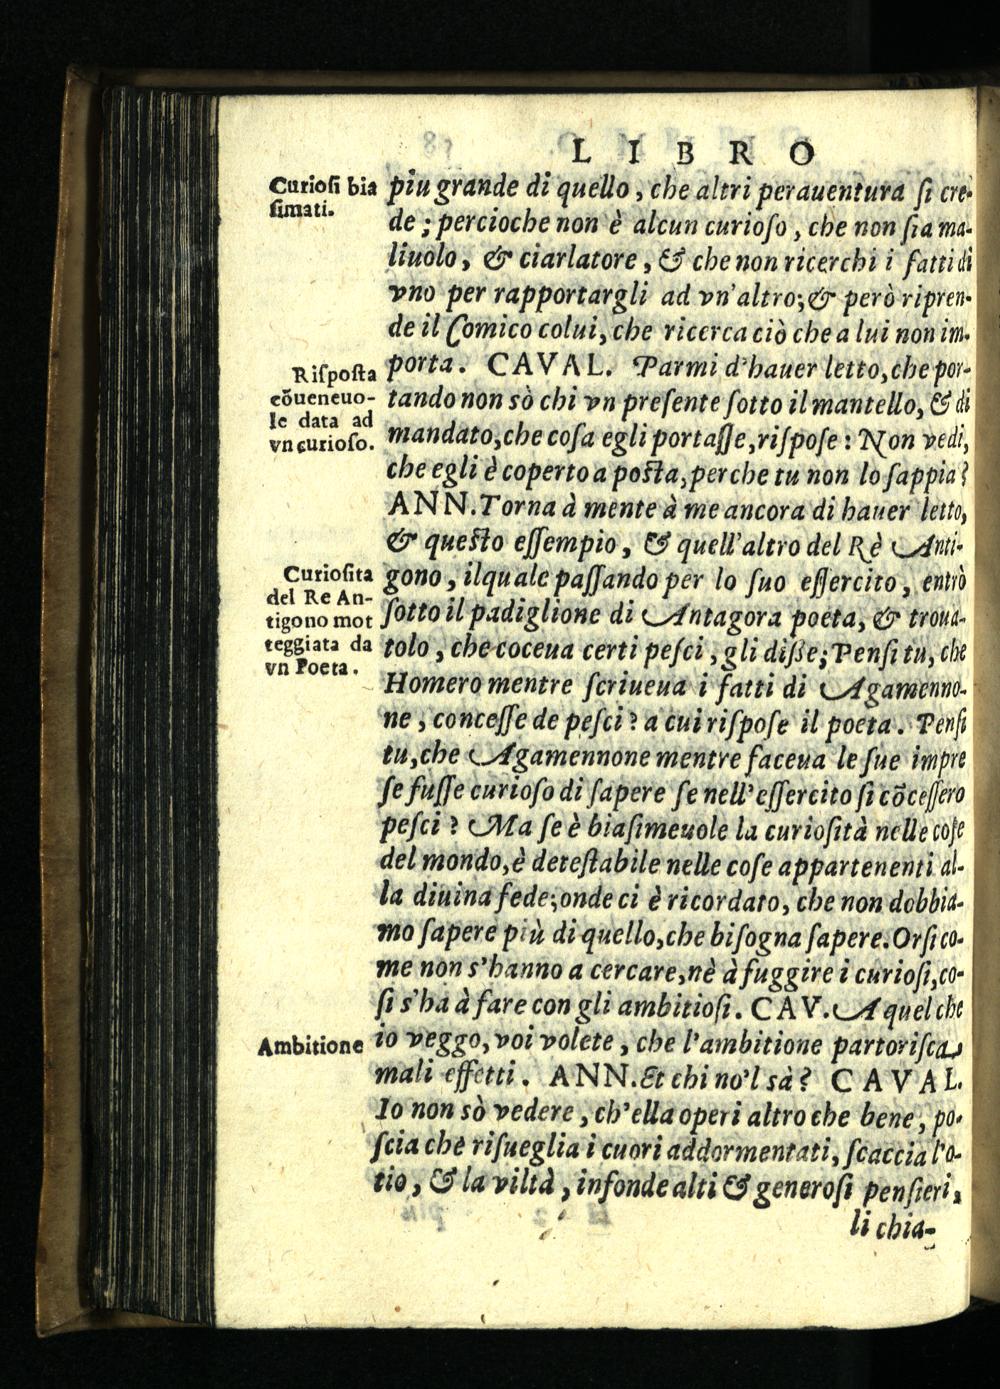 LIBRO
Curiosi bia
simati.
piu grande di quello, che altri perauentura si cre-
de; percioche non è alcun curioso, che non sia ma-
liuolo, & ciarlatore, & che non ricerchi i fatti di
vno per rapportargli ad vn'altro; & però ripren-
de il Comico colui, che ricerca ciò che a lui non im-
porta. CAVAL. Parmi d'hauer letto, che por-
Risposta
cōueneuo-
le data ad
vn curioso.
tando non sò chi vn presente sotto il mantello, & di
mandato, che cosa egli portasse, rispose: Non vedi,
che egli è coperto a posta, perche tu non lo sappia?
ANN. Torna à mente à me ancora di hauer letto,
& questo essempio, & quell'altro del Rè Anti-
Curiosita
del Re An-
tigono mot
teggiata da
vn Poeta.
gono, ilquale passando per lo suo essercito, entrò
sotto il padiglione di Antagora poeta, & troua-
tolo, che coceua certi pesci, gli disse; Pensi tu, che
Homero mentre scriueua i fatti di Agamenno-
ne, concesse de pesci? a cui rispose il poeta. Pensi
tu, che Agamennone mentre faceua le sue impre
se fusse curioso di sapere se nell'essercito si cōcessero
pesci? Ma se è biasimeuole la curiosità nelle cose
del mondo, è detestabile nelle cose appartenenti al-
la diuina fede; onde ci è ricordato, che non dobbia-
mo sapere più di quello, che bisogna sapere. Or si co-
me non s'hanno a cercare, nè à fuggire i curiosi, co-
si s'ha à fare con gli ambitiosi. CAV. A quel che
Ambitione
io veggo, voi volete, che l'ambitione partorisca
mali effetti. ANN. Et chi no'l sà? CAVAL.
Io non sò vedere, ch'ella operi altro che bene, po-
scia che risueglia i cuori addormentati, scaccia l'o-
tio, & la viltà, infonde alti & generosi pensieri,
li chia-